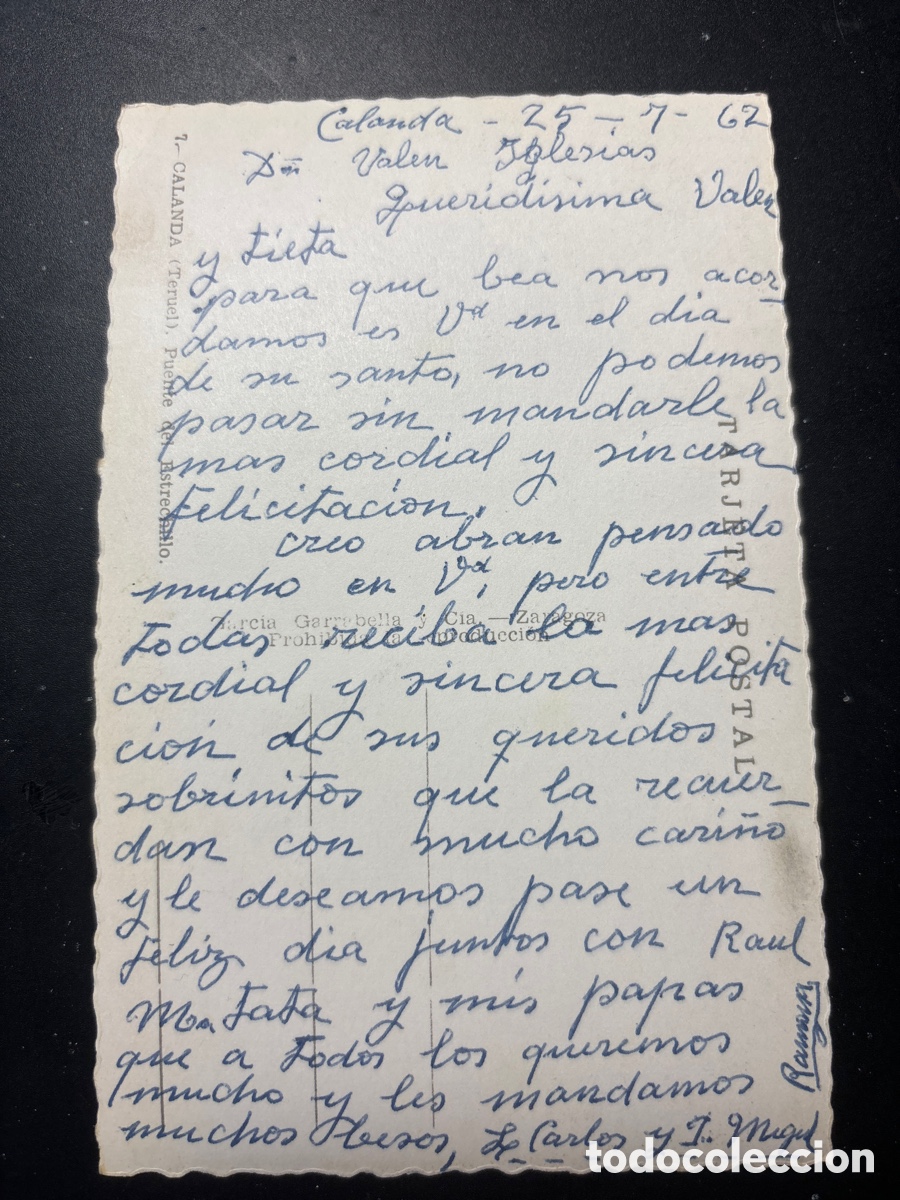 Calanda - 25 - 7 - 62
Dña Valen Iglesias
Queridisima Valen
y tieta
para que bea nos acor-
damos es Vd en el dia
de su santo, no podemos
pasar sin mandarle la
mas cordial y sincera
felicitacion.
creo abran pensado
mucho en Vd, pero entre
todas reciba la mas
cordial y sincera felicita
ción de sus queridos
sobrinitos que la recuer-
dan con mucho cariño
y le deseamos pase un
feliz dia juntos con Raul
Mª tata y mis papas
que a todos los queremos
mucho y les mandamos
muchos besos, Carlos y J. Miguel
Ramon
7.- CALANDA (Teruel). Puente del Estrechillo.
TARJETA POSTAL
Garcia Garrabella y Cia.—Zaragoza
Prohibida la reproducción
todocoleccion